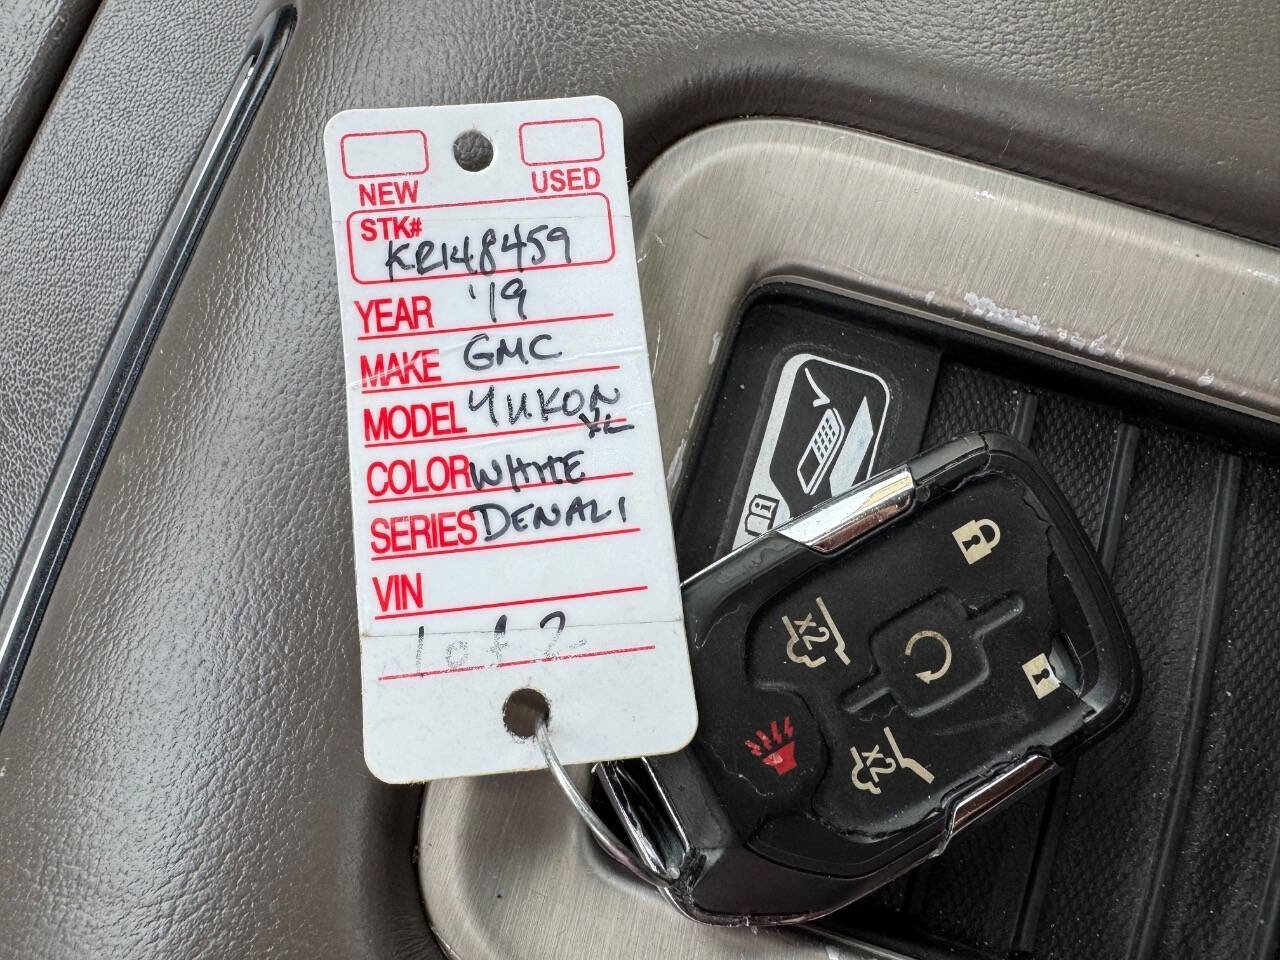 NEW USED
STK#
KR148459
YEAR '19
MAKE GMC
MODEL YUKON
XL
COLOR WHITE
SERIES DENALI
VIN
1 of 2
X2
X2